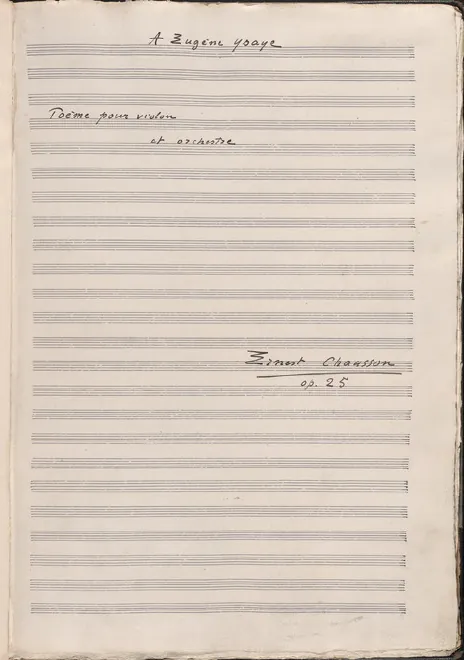 A Eugène Ysaye
Poème pour violon
et orchestre
Ernest Chausson
op. 25